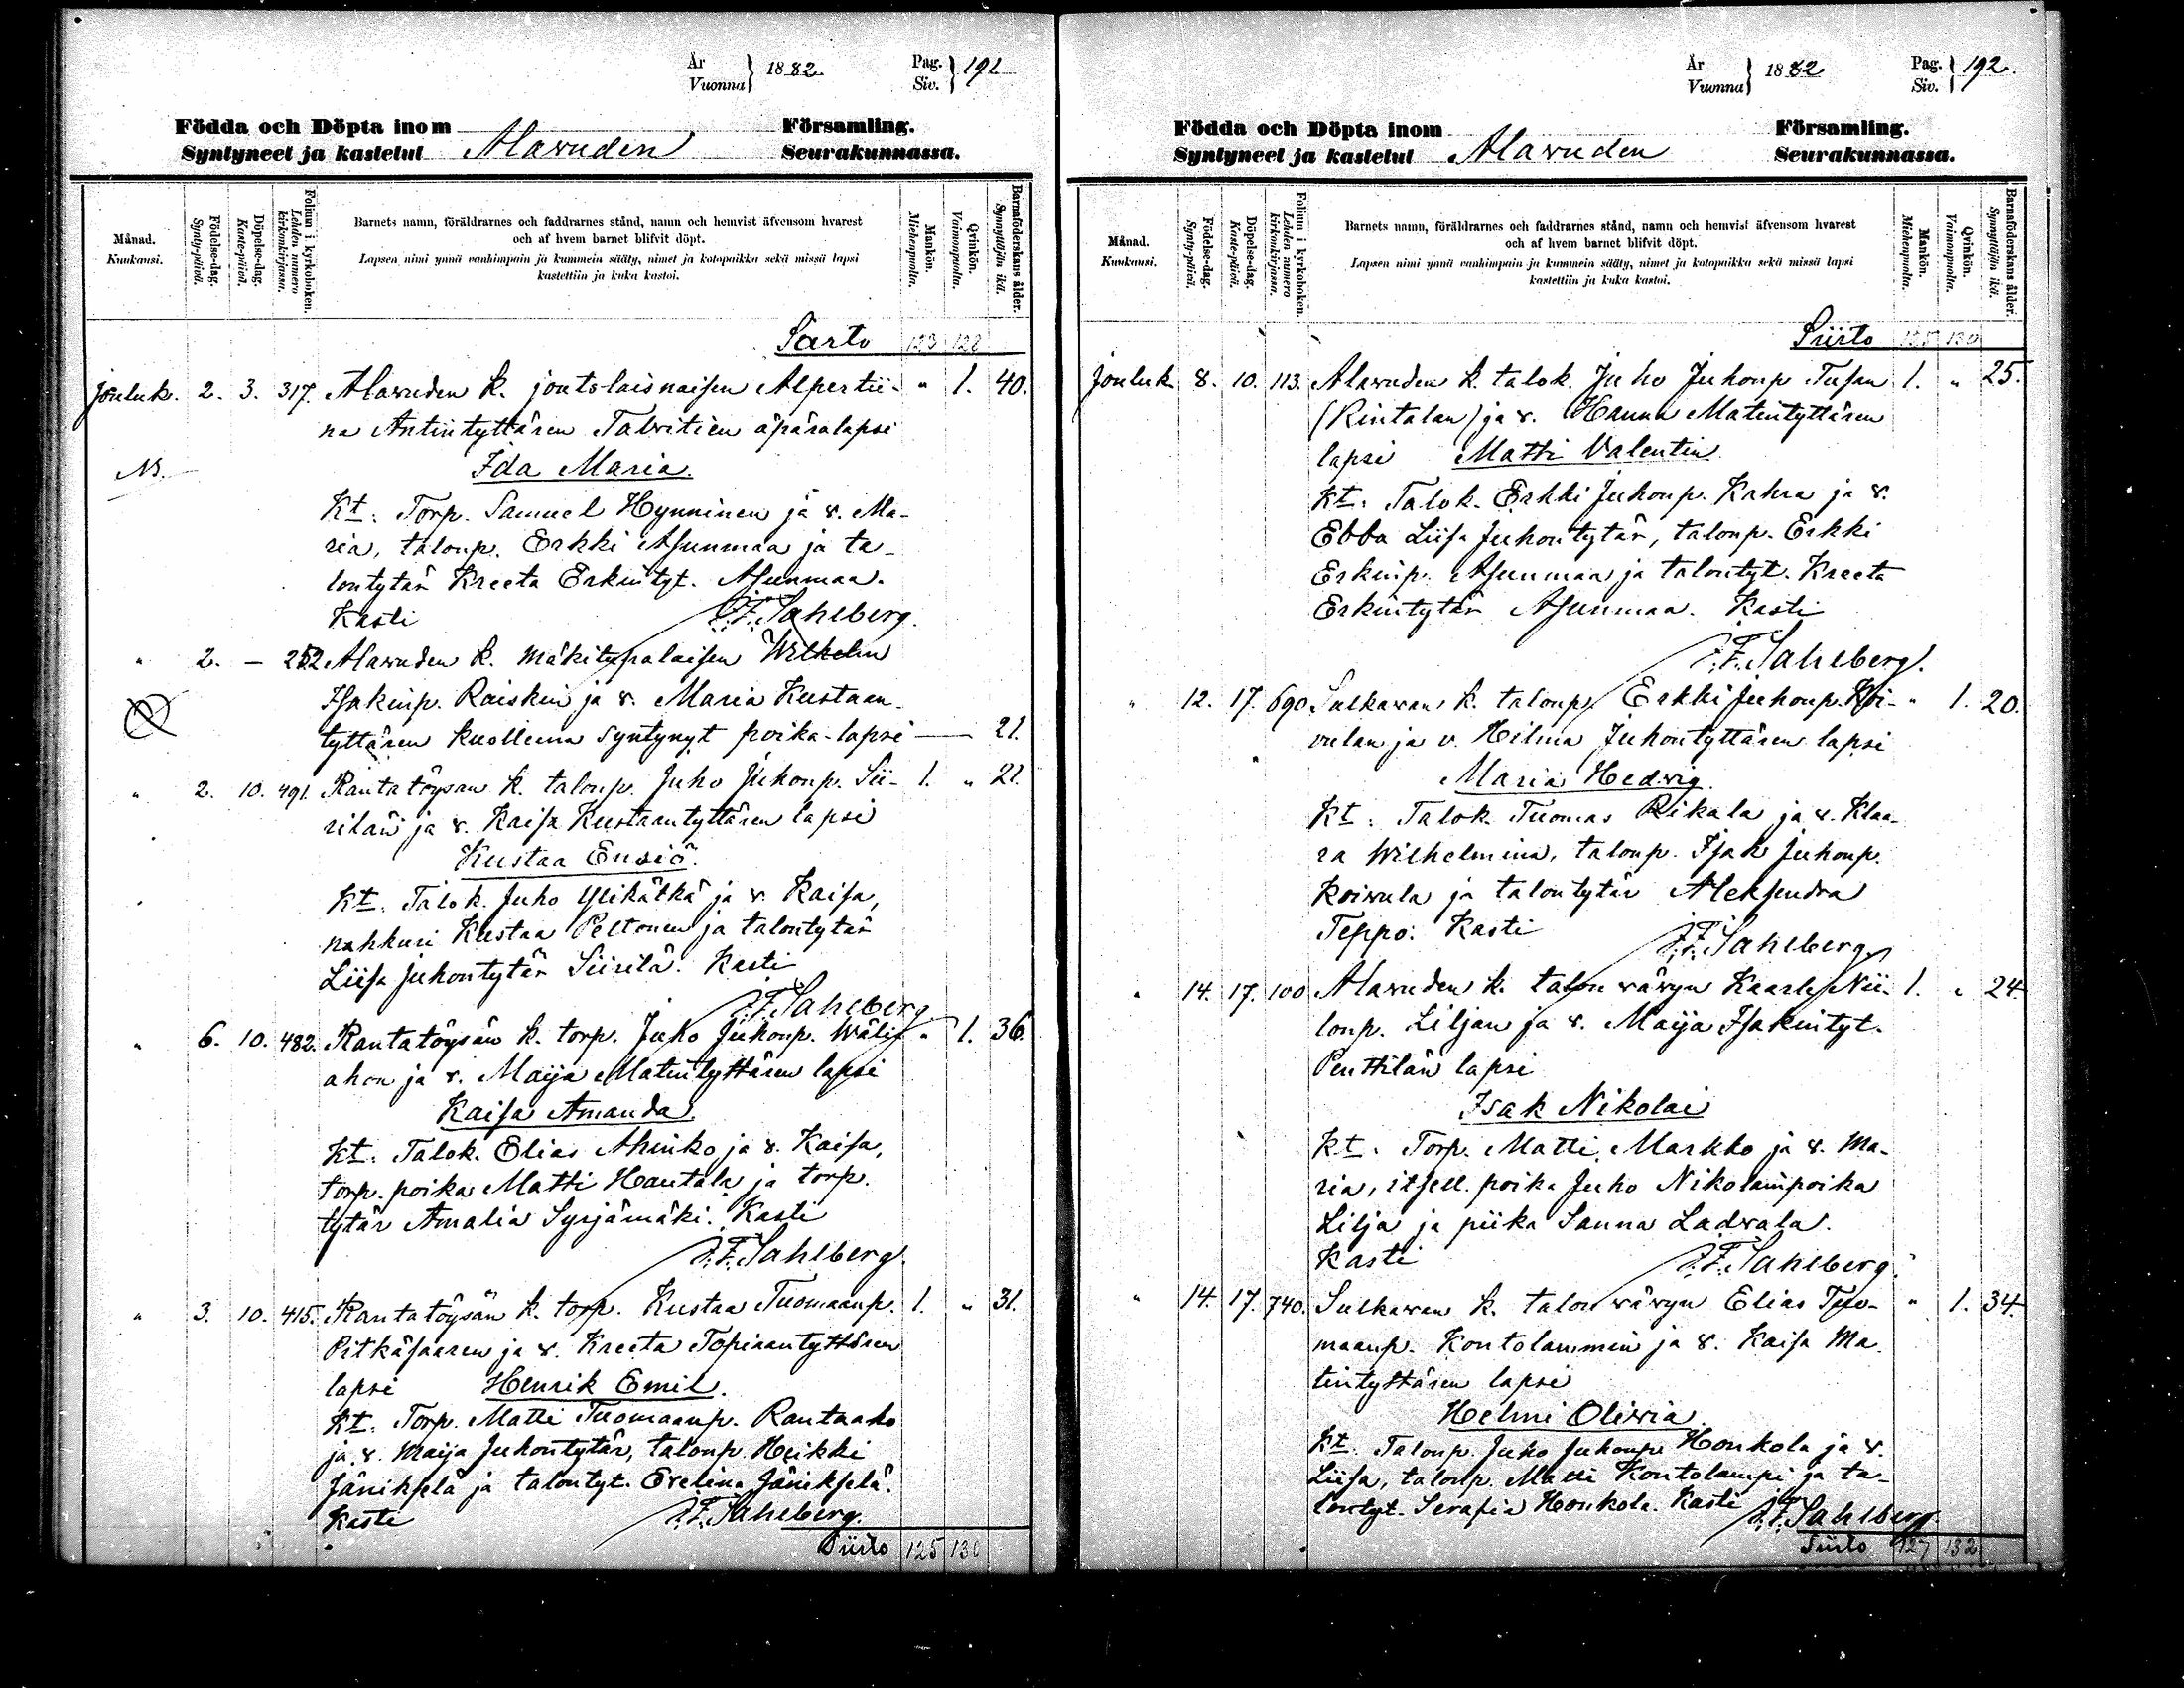 År
Vuonna } 1882.
Pag.
Siv. } 191
Födda och Döpta inom Församling.
Syntyneet ja kastetut Alavuden Seurakunnassa.
Månad.
Kuukausi.
Födelse-dag.
Synty-päivä.
Döpelse-dag.
Kaste-päivä.
Folium i kyrkoboken.
Lehden numero kirkonkirjassa.
Barnets namn, föräldrarnes och faddrarnes stånd, namn och hemvist äfvensom hvarest
och af hvem barnet blifvit döpt.
Lapsen nimi ynnä vanhimpain ja kummein sääty, nimet ja kotopaikka sekä missä lapsi
kastettiin ja kuka kastoi.
Mankön.
Miehenpuolta.
Qvinkön.
Vaimonpuolta.
Barnaföderskans ålder.
Synnyttäjän ikä.
Siirto 123 128
Jouluk. 2. 3. 317. Alavuden k. joutolaisnaisen Alpertii- " 1. 40.
na Antintyttären Talvitien äpäralapsi
NB. Ida Maria.
Kt: Torp. Samuel Hynninen ja v. Ma-
ria, talonp. Erkki Asunmaa ja ta-
lontytär Kreeta Erkintyt. Asunmaa.
Kasti J.F. Sahlberg.
" 2. — 252 Alavuden k. mäkitupalaisen Wilhelm
Isakinp. Raiskin ja v. Maria Kustaan-
tyttären kuollema syntynyt poika-lapsi — 21.
" 2. 10. 491. Rantatöysän k. talonp. Juho Juhonp. Sii- 1. " 21.
rilän ja v. Kaisa Kustaantyttären lapsi
Kustaa Ensiö.
Kt. Talok. Juho Ylikätkä ja v. Kaisa,
nahkuri Kustaa Peltonen ja talontytär
Liisa Juhontytär Siirilä. Kasti
J.F. Sahlberg
" 6. 10. 482. Rantatöysän k. torp. Juho Juhonp. Wäli- " 1. 36.
ahon ja v. Maija Matintyttären lapsi
Kaisa Amanda.
Kt: Talok. Elias Ahinko ja v. Kaisa,
torp. poika Matti Hautala ja torp.
tytär Amalia Syrjämäki. Kasti
J.F. Sahlberg.
" 3. 10. 415. Rantatöysän k. torp. Kustaa Tuomaanp. 1. " 31.
Pitkäsaaren ja v. Kreeta Topiaantyttären
lapsi Henrik Emil.
Kt: Torp. Matti Tuomaanp. Rantaaho
ja v. Maija Juhontytär, talonp. Heikki
Jäniksela ja talontyt. Evelina Jäniksela.
Kasti J.F. Sahlberg.
Siirto 125 130
År
Vuonna } 1882
Pag.
Siv. } 192.
Födda och Döpta inom Församling.
Syntyneet ja kastetut Alavuden Seurakunnassa.
Månad.
Kuukausi.
Födelse-dag.
Synty-päivä.
Döpelse-dag.
Kaste-päivä.
Folium i kyrkoboken.
Lehden numero kirkonkirjassa.
Barnets namn, föräldrarnes och faddrarnes stånd, namn och hemvist äfvensom hvarest
och af hvem barnet blifvit döpt.
Lapsen nimi ynnä vanhimpain ja kummein sääty, nimet ja kotopaikka sekä missä lapsi
kastettiin ja kuka kastoi.
Mankön.
Miehenpuolta.
Qvinkön.
Vaimonpuolta.
Barnaföderskans ålder.
Synnyttäjän ikä.
Siirto 125 130
Jouluk 8. 10. 113. Alavuden k. talok. Juho Juhonp Tusan 1. " 25.
(Rintalan) ja v. Hanna Matintyttären
lapsi Matti Valentin
Kt: Talok. Erkki Juhonp. Kahra ja v.
Ebba Liisa Juhontytär, talonp. Erkki
Erkinp. Asunmaa ja talontyt. Kreeta
Erkintytär Asunmaa. Kasti
J.F. Sahlberg.
" 12. 17. 690 Sulkavan k. talonp. Erkki Juhonp. Koi- " 1. 20.
vulan ja v. Hilma Juhontyttären lapsi
Maria Hedvig
Kt: Talok Tuomas Rikala ja v. Klaa-
ra Wilhelmina, talonp. Isak Juhonp.
Koivula ja talontytär Aleksandra
Teppo. Kasti J.F. Sahlberg
" 14. 17. 100 Alavuden k. talon vävyn Kaarle Nii- 1. " 24
lonp. Liljan ja v. Maija Isakintyt.
Penttilän lapsi
Isak Nikolai
Kt: Torp. Matti Markko ja v. Ma-
ria, itsell. poika Juho Nikolainpoika
Lilja ja piika Sanna Ladvala.
Kasti J.F. Sahlberg.
" 14. 17. 740. Sulkavan k. talon vävyn Elias Tuo- " 1. 34.
maanp. Kontolammin ja v. Kaisa Ma
tintyttären lapsi
Helmi Olivia.
Kt. Talonp. Juho Juhonp. Honkola ja v.
Liisa, talonp. Matti Kontolampi ja ta-
lontyt. Serafia Honkola. Kasti J.F. Sahlberg
Siirto 127 132